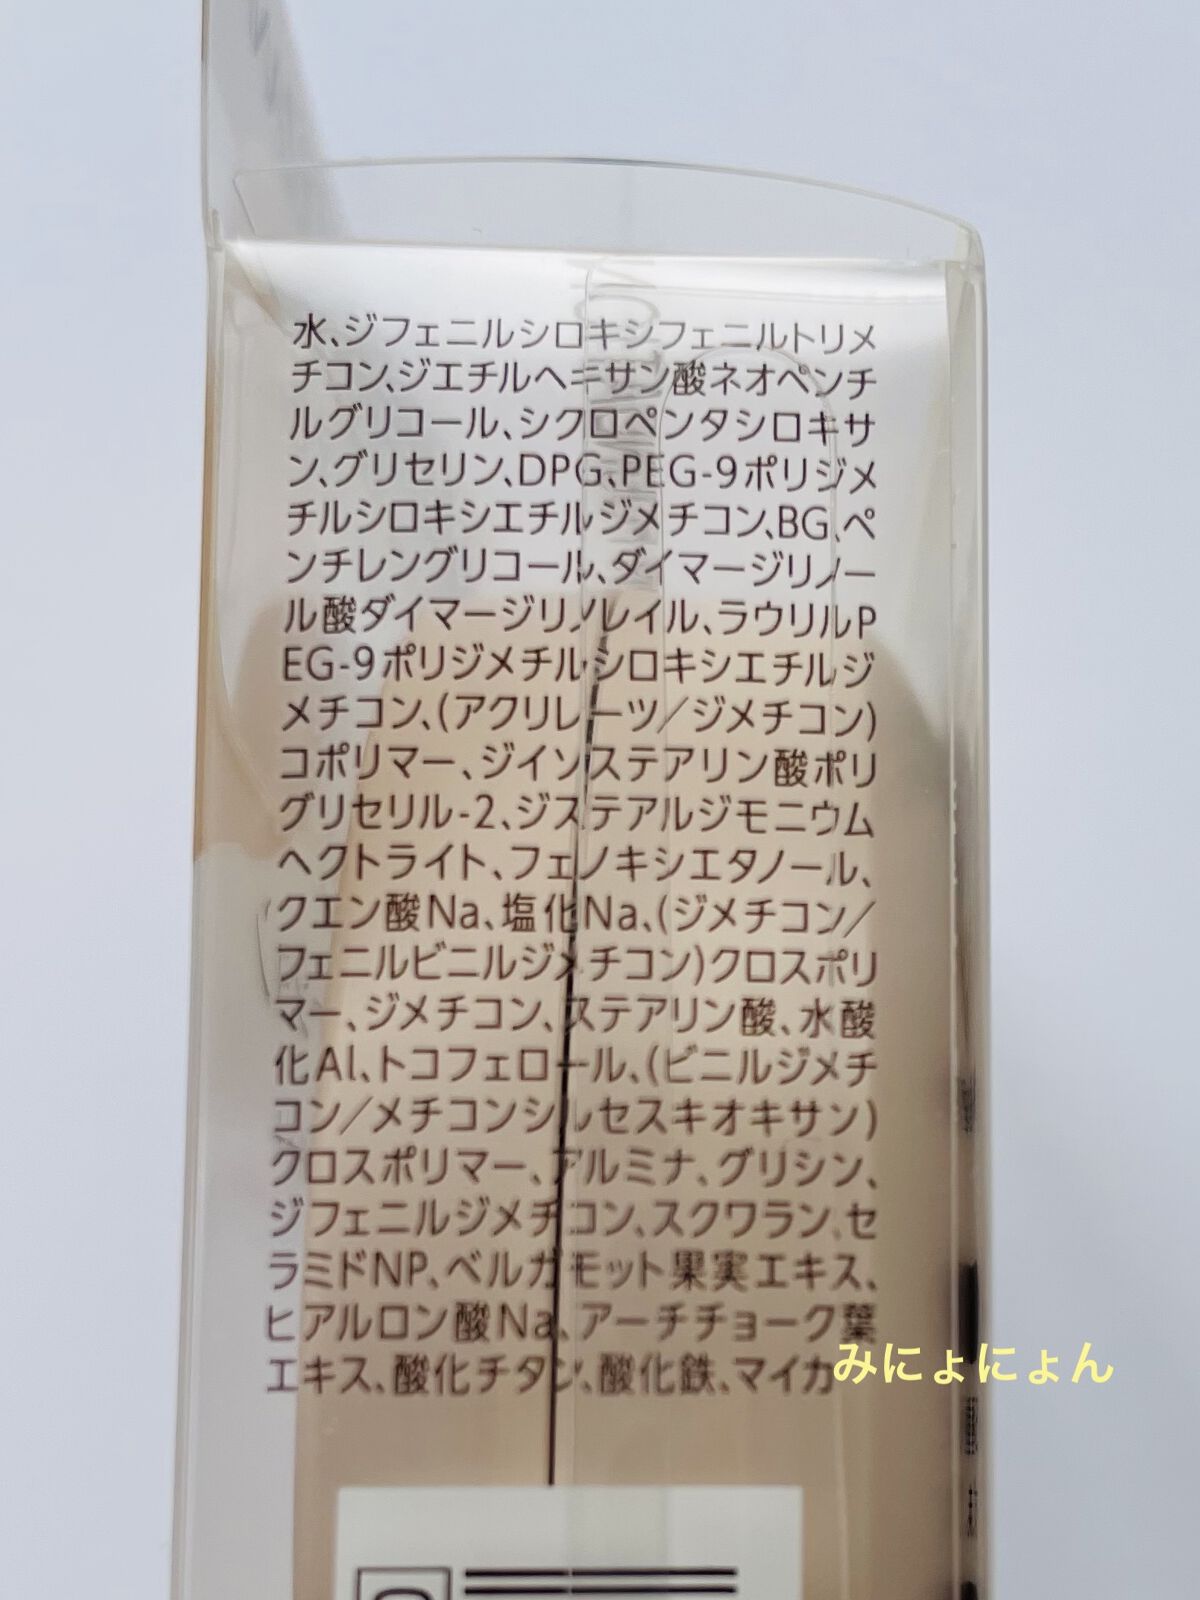 水、ジフェニルシロキシフェニルトリメ
チコン、ジエチルヘキサン酸ネオペンチ
ルグリコール、シクロペンタシロキサ
ン、グリセリン、DPG、PEG-9ポリジメ
チルシロキシエチルジメチコン、BG、ペ
ンチレングリコール、ダイマージリノー
ル酸ダイマージリノレイル、ラウリルP
EG-9ポリジメチルシロキシエチルジ
メチコン、(アクリレーツ/ジメチコン)
コポリマー、ジイソステアリン酸ポリ
グリセリル-2、ジステアルジモニウム
ヘクトライト、フェノキシエタノール、
クエン酸Na、塩化Na、(ジメチコン/
フェニルビニルジメチコン)クロスポリ
マー、ジメチコン、ステアリン酸、水酸
化Al、トコフェロール、(ビニルジメチ
コン/メチコンシルセスキオキサン)
クロスポリマー、アルミナ、グリシン、
ジフェニルジメチコン、スクワラン、セ
ラミドNP、ベルガモット果実エキス、
ヒアルロン酸Na、アーチチョーク葉
エキス、酸化チタン、酸化鉄、マイカ
みにょにょん